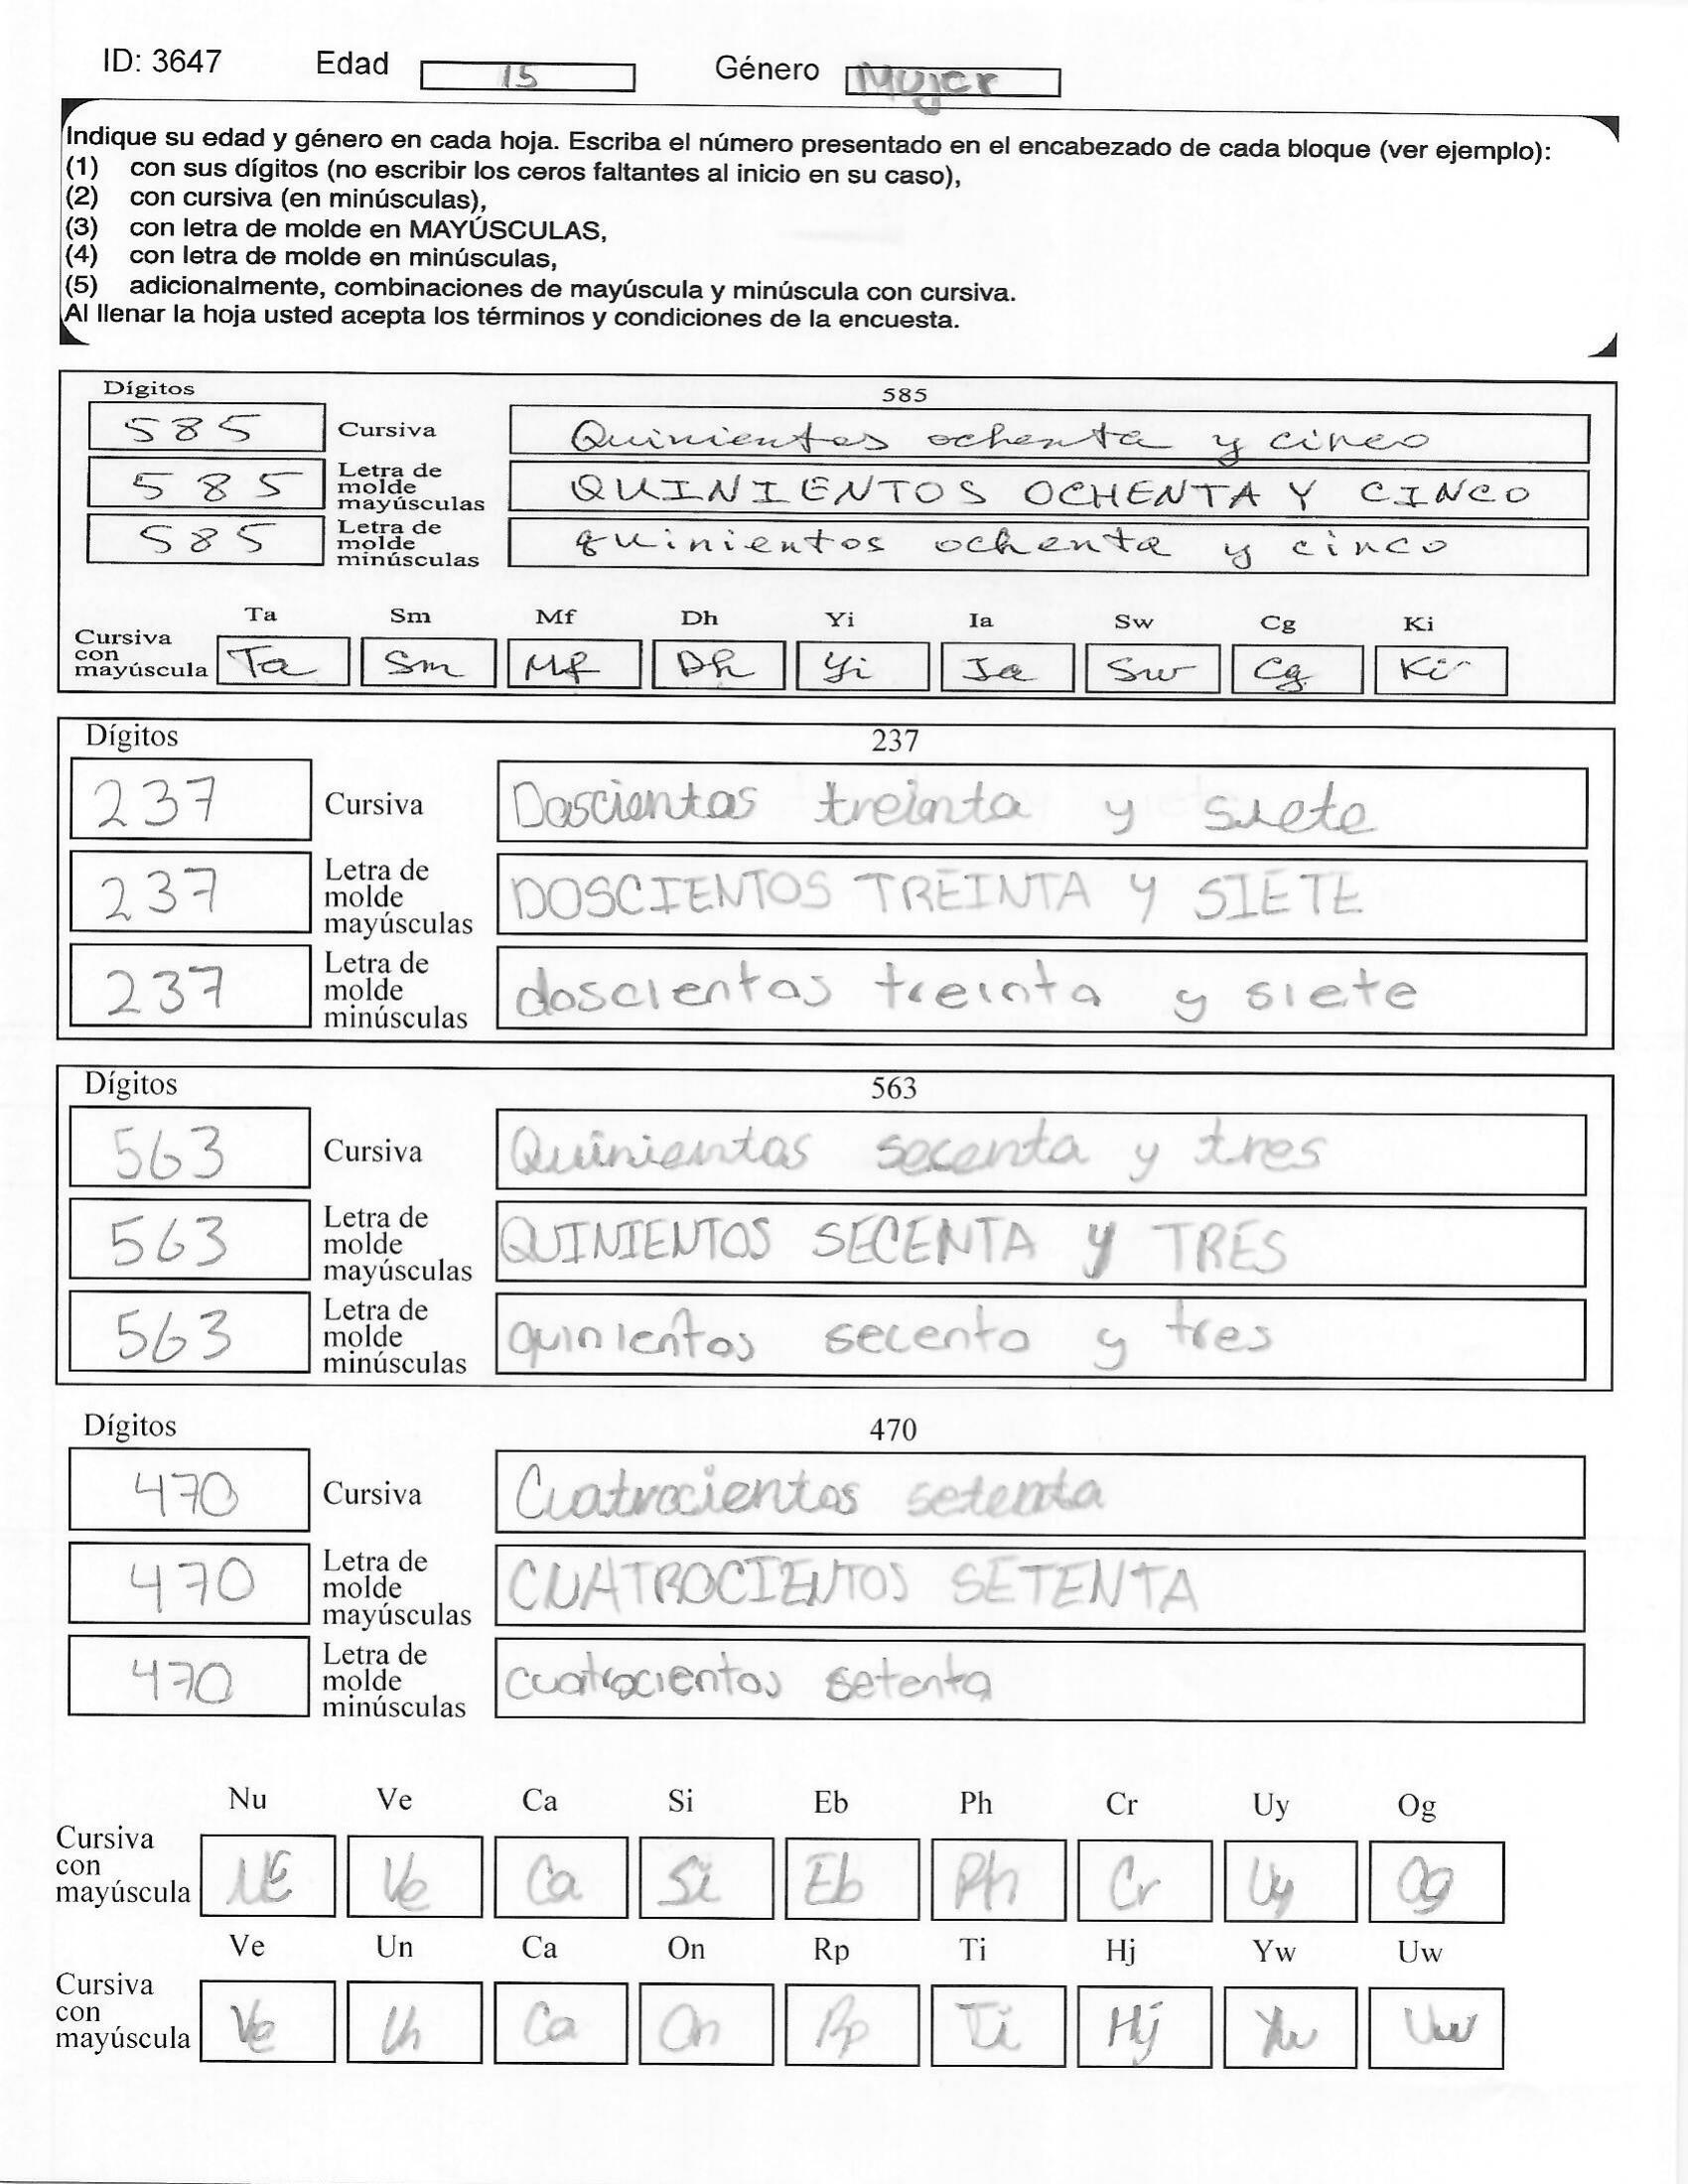 ID: 3647 Edad 15 Género Mujer
Indique su edad y género en cada hoja. Escriba el número presentado en el encabezado de cada bloque (ver ejemplo):
(1) con sus dígitos (no escribir los ceros faltantes al inicio en su caso),
(2) con cursiva (en minúsculas),
(3) con letra de molde en MAYÚSCULAS,
(4) con letra de molde en minúsculas,
(5) adicionalmente, combinaciones de mayúscula y minúscula con cursiva.
Al llenar la hoja usted acepta los términos y condiciones de la encuesta.
Dígitos 585
585 Cursiva Quinientos ochenta y cinco
585 Letra de molde mayúsculas QUINIENTOS OCHENTA Y CINCO
585 Letra de molde minúsculas quinientos ochenta y cinco
Ta Sm Mf Dh Yi Ia Sw Cg Ki
Cursiva con mayúscula Ta Sm Mf Dh Yi Ia Sw Cg Ki
Dígitos 237
237 Cursiva Doscientos treinta y siete
237 Letra de molde mayúsculas DOSCIENTOS TREINTA Y SIETE
237 Letra de molde minúsculas doscientos treinta y siete
Dígitos 563
563 Cursiva Quinientos secenta y tres
563 Letra de molde mayúsculas QUINIENTOS SECENTA y TRES
563 Letra de molde minúsculas quinientos secenta y tres
Dígitos 470
470 Cursiva Cuatrocientos setenta
470 Letra de molde mayúsculas CUATROCIENTOS SETENTA
470 Letra de molde minúsculas cuatrocientos setenta
Nu Ve Ca Si Eb Ph Cr Uy Og
Cursiva con mayúscula Ve Ca Si Eb Ph Cr Uy Og
Ve Un Ca On Rp Ti Hj Yw Uw
Cursiva con mayúscula Ve Un Ca On Rp Ti Hj Yw Uw